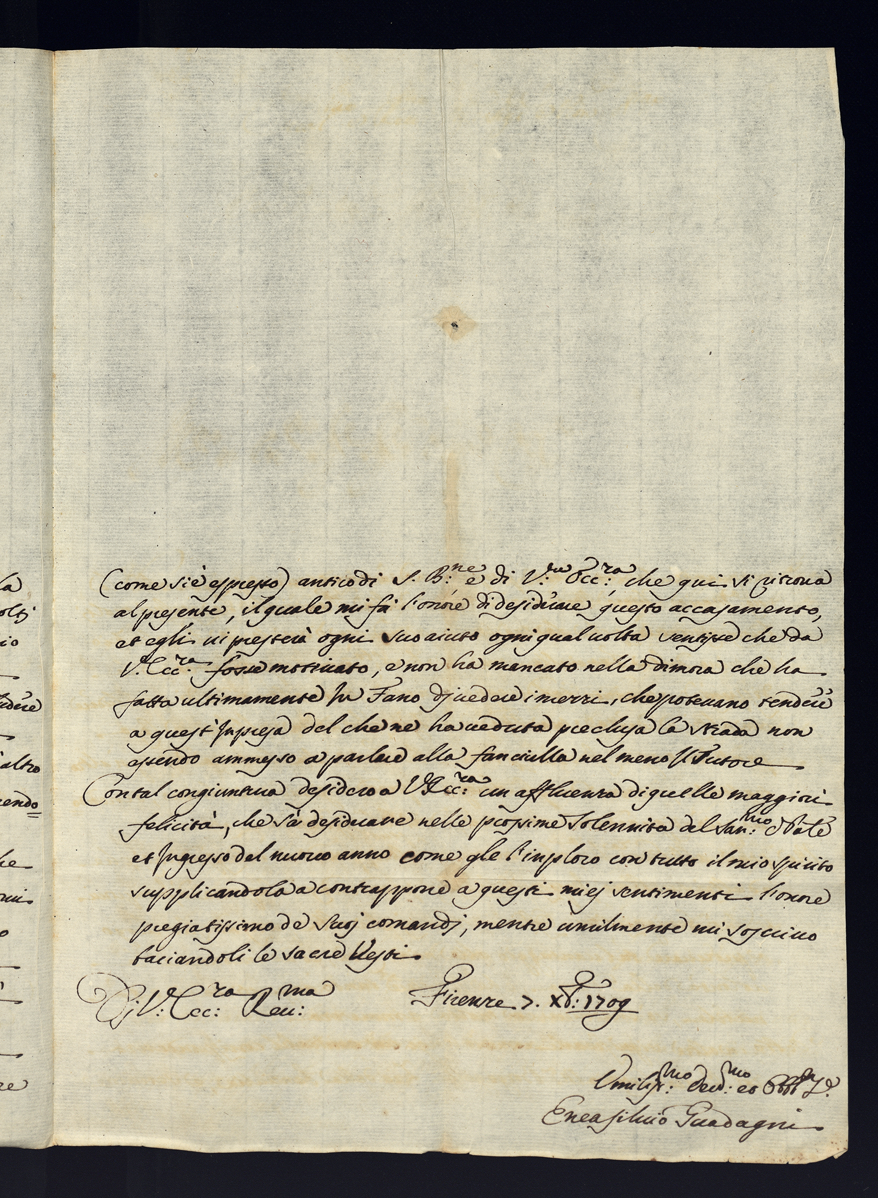 (come si è espresso) antico di S. B.ne e di V.ra Ecc.ra, che qui si ritrova
al presente, il quale mi fà l'onore di desiderare questo accasamento,
et egli vi presterà ogni suo aiuto ogni qual volta sentisse che da
V. Ecc.ra fosse motivato, e non ha mancato nella dimora che ha
fatta ultimamente In Fano di vedere i mezzi, che potevano rendere
a quest'Inpresa del che ne ha veduta preclusa la strada non
essendo ammesso a parlare alla fanciulla nel meno Il Tutore
Con tal congiuntura desidero a V. Ecc.ra un affluenza di quelle maggiori
felicità, che sà desiderare nelle prossime solennità del San.mo Natale
et Ingresso del nuovo anno come gle l'inploro con tutto il mio spirito
supplicandola a contrapporre a questi miej sentimenti l'onore
pregiatissimo de suoj comandj, mentre umilmente mi soscrivo
baciandoli le sacre Vesti
Dj V. Ecc.ra Rev.ma Firenze 7. Xb: 1709
Umiliss.mo dev.mo et Obb.
Enea silvio Guadagni
la
oltj
io
altro
endo
he